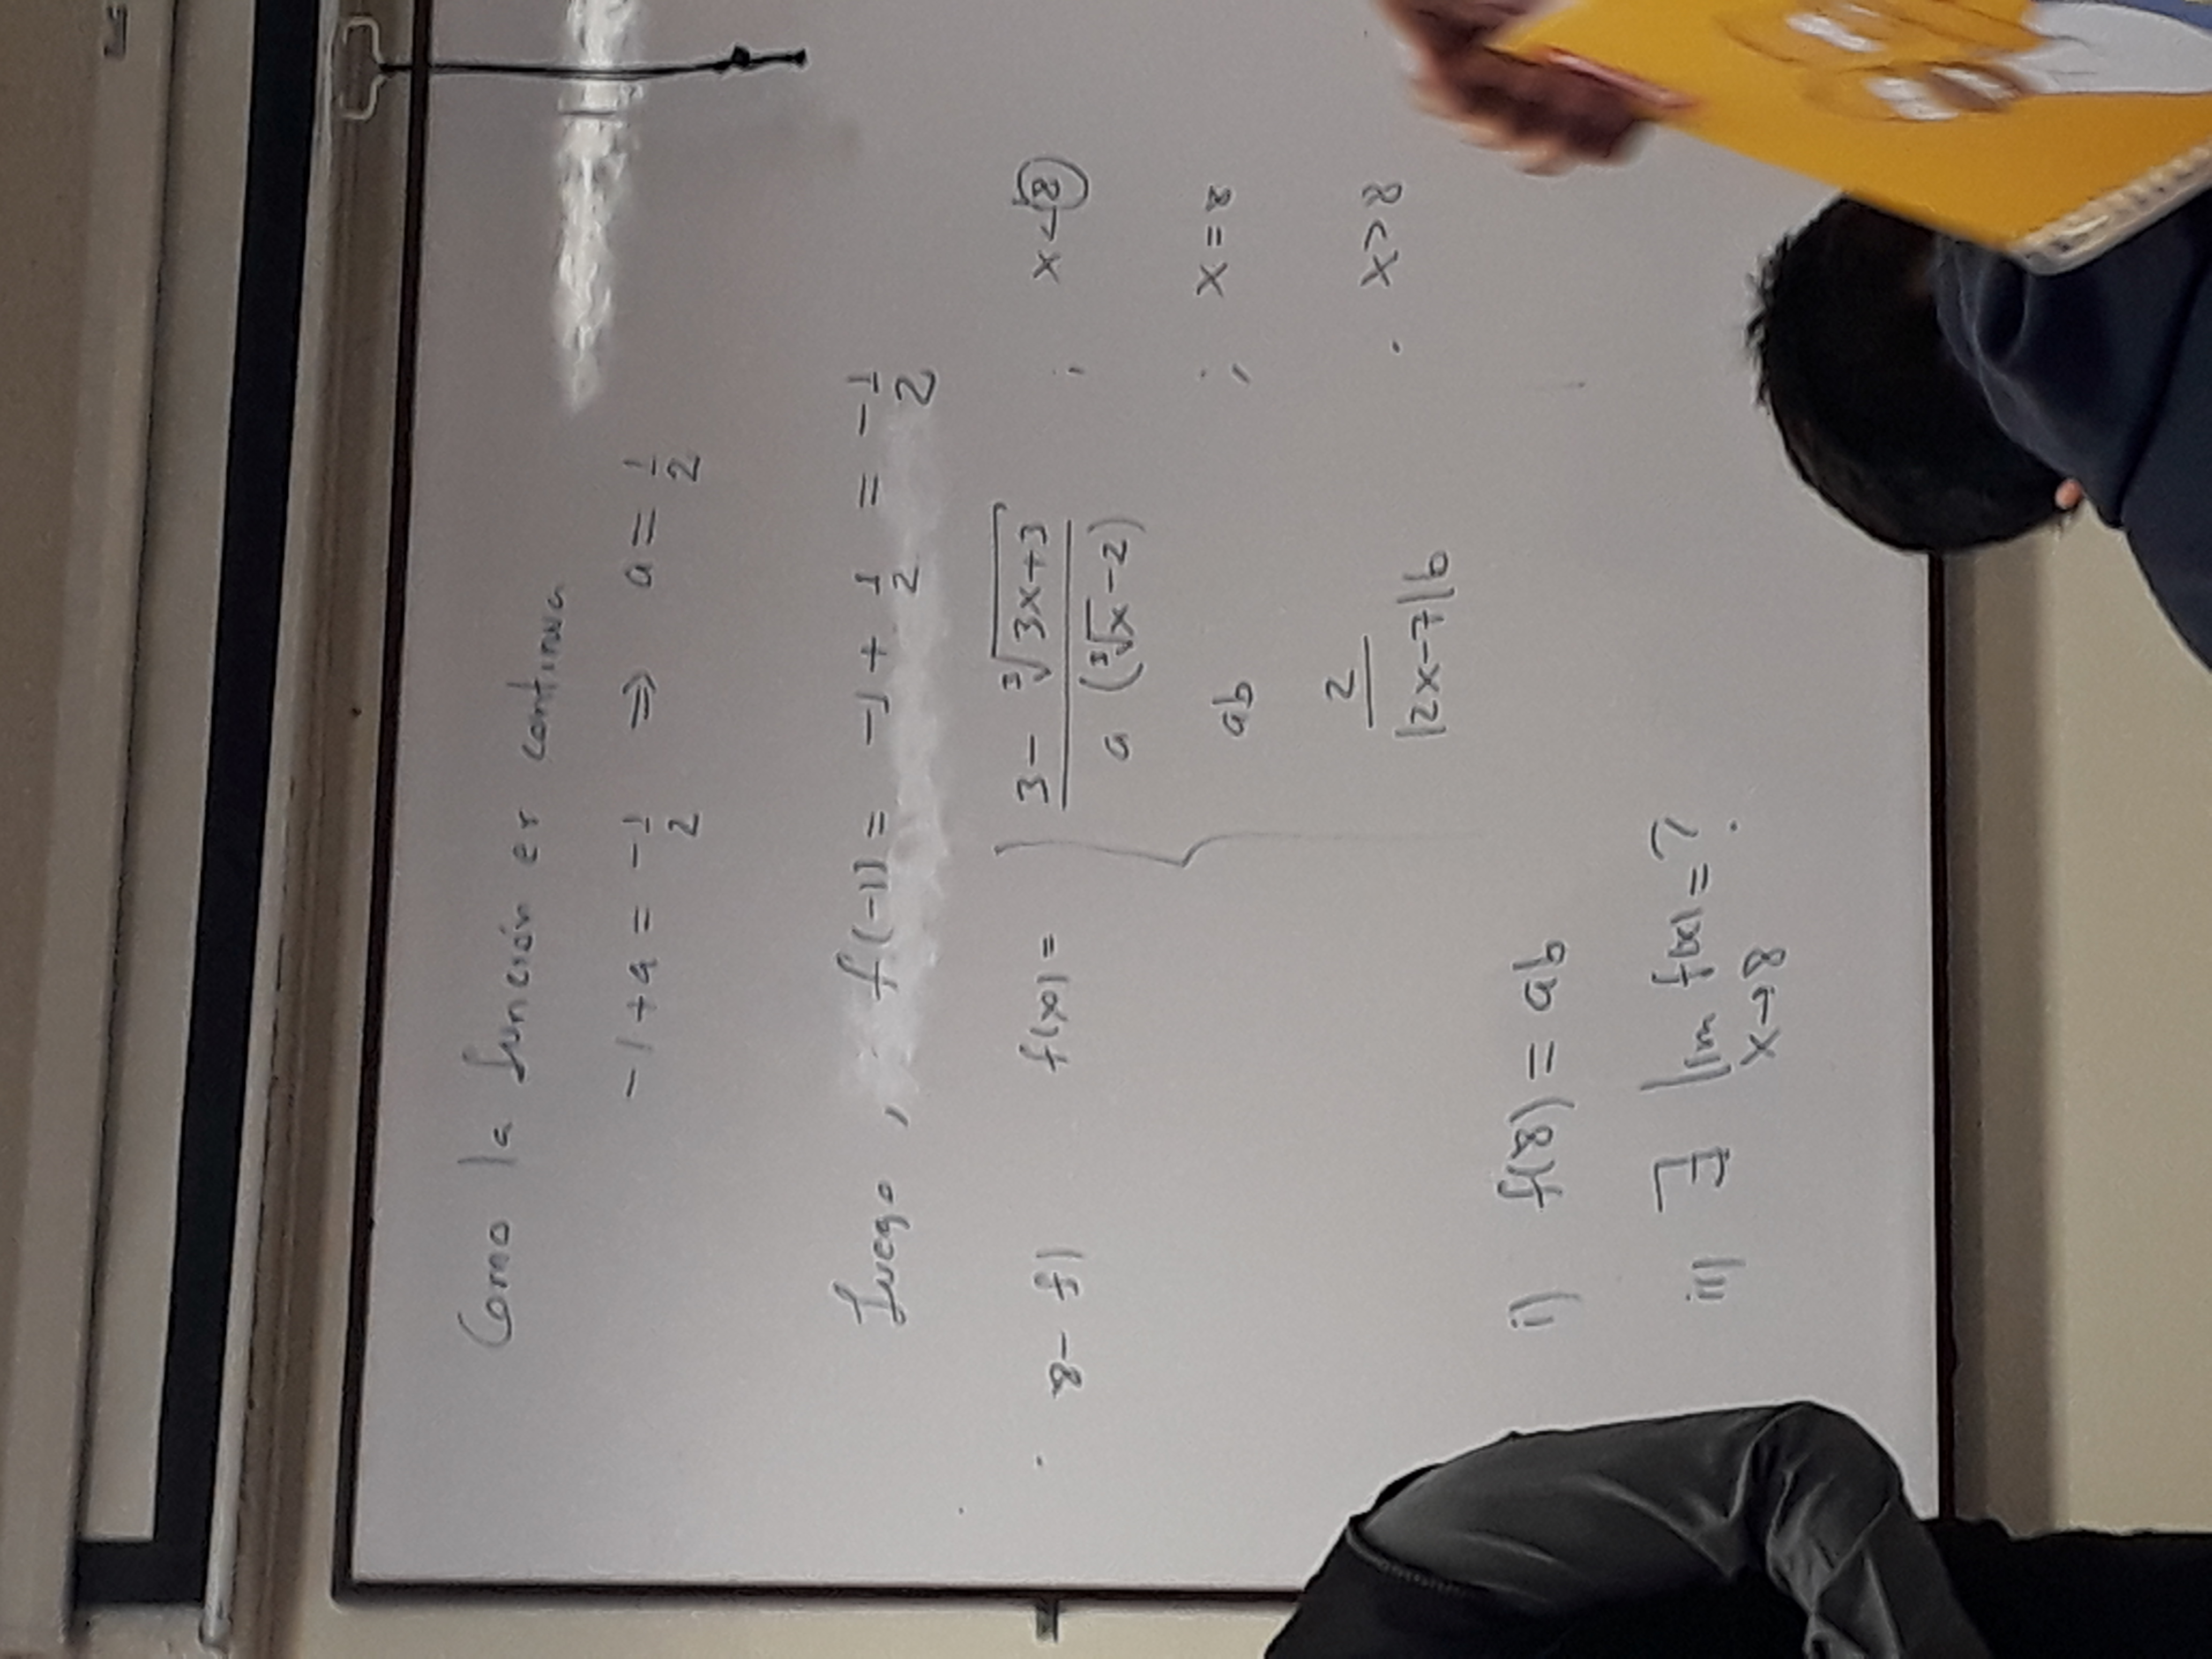 Como la función es continua
-1+a = -1/2 ⇒ a = 1/2
Luego, f(-1) = -1 + 1/2 = -1/2
8- f) f(x) = { (3 - ∛(3x+3)) / (a (∛x - 2)) ; x < 8
ab ; x = 8
2 / (|2x-7|b) . x > 8
i) f(8) = ab
ii) ∃ lim f(x) = ?
x→8